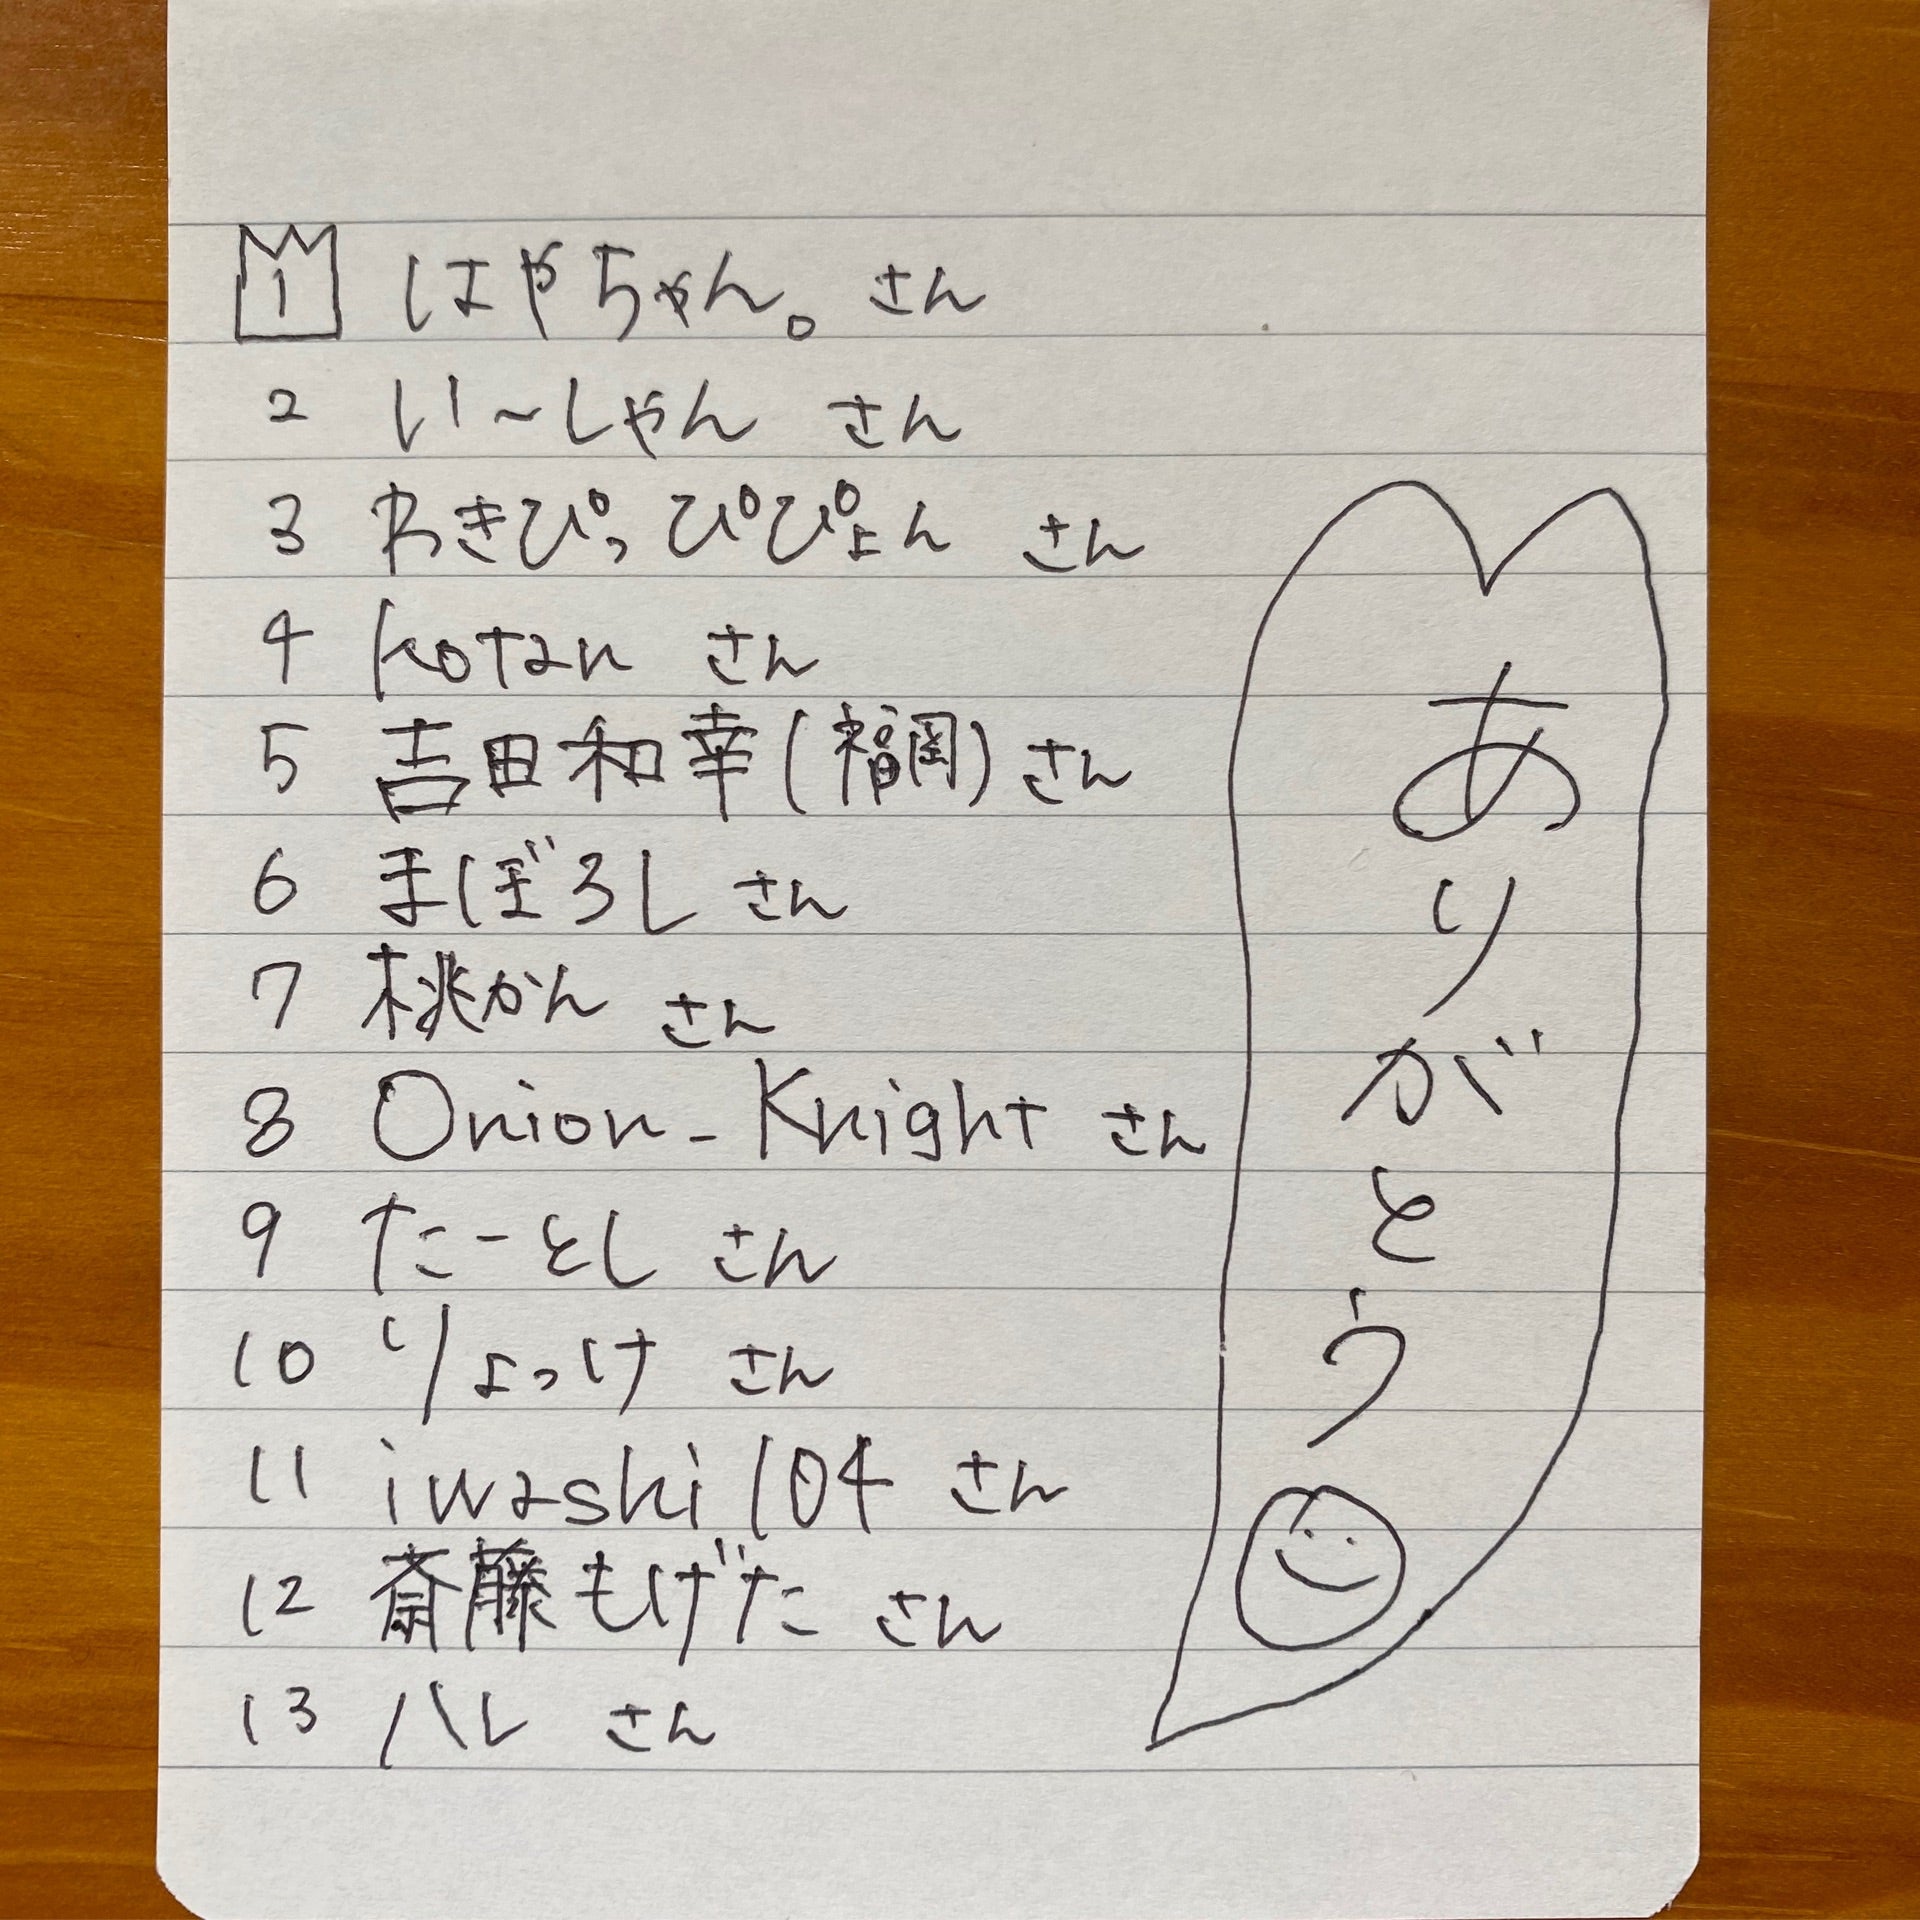 1 はやちゃん。さん
2 い〜しゃん さん
3 わきぴっぴぴょん さん
4 kotan さん
5 吉田和幸(福岡)さん
6 まぼろし さん
7 桃かん さん
8 Onion-Knight さん
9 たーとし さん
10 りょっけ さん
11 iwashi104 さん
12 斎藤もげた さん
13 ハレ さん
ありがとう